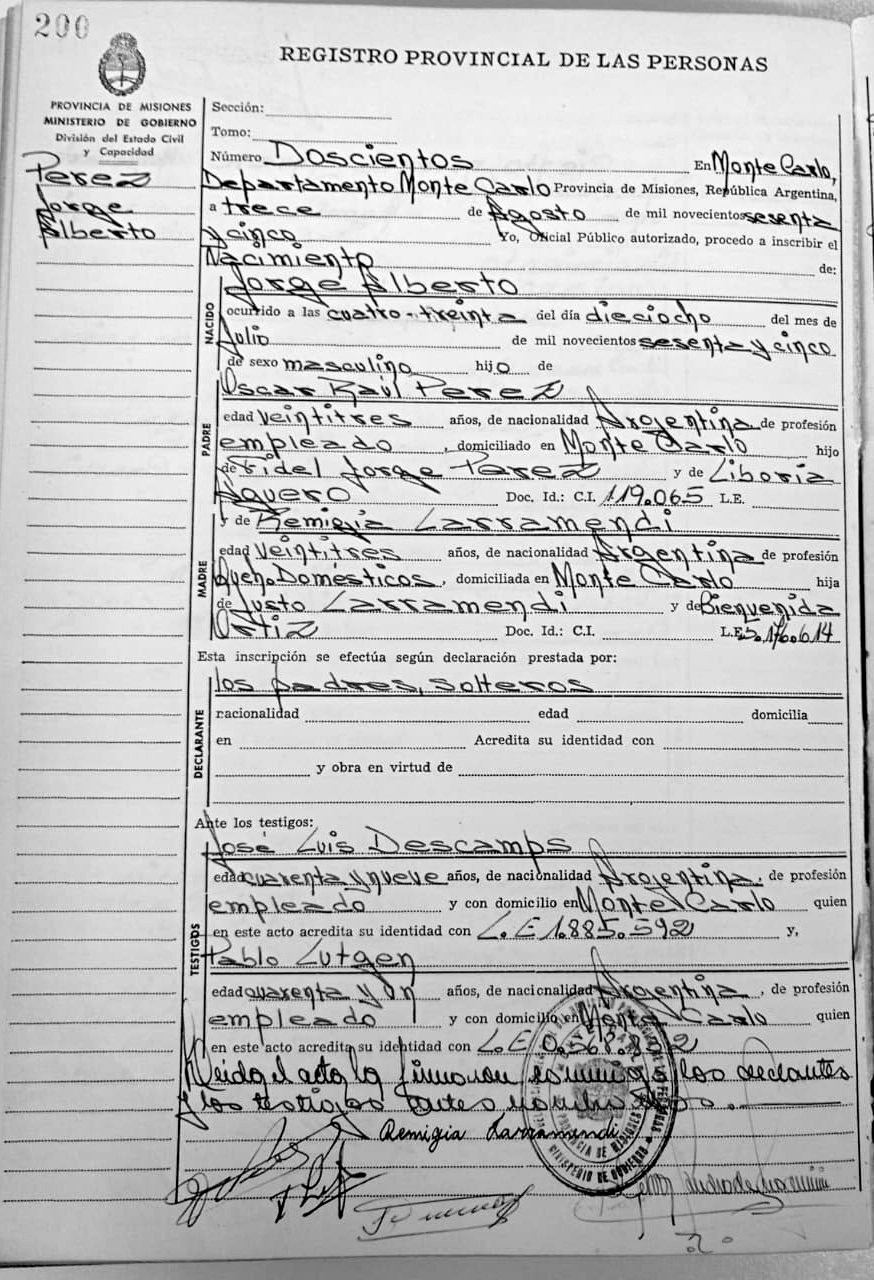 200
REGISTRO PROVINCIAL DE LAS PERSONAS
PROVINCIA DE MISIONES
MINISTERIO DE GOBIERNO
División del Estado Civil
y Capacidad
Perez
Jorge
Alberto
Sección:
Tomo:
Número Doscientos En Monte Carlo,
Departamento Monte Carlo Provincia de Misiones, República Argentina,
a trece de Agosto de mil novecientos sesenta
y cinco Yo, Oficial Público autorizado, procedo a inscribir el
Nacimiento de:
NACIDO
Jorge Alberto
ocurrido a las cuatro-treinta del día dieciocho del mes de
Julio de mil novecientos sesenta y cinco
de sexo masculino hijo de
PADRE
Oscar Raúl Perez
edad veintitres años, de nacionalidad Argentina de profesión
empleado, domiciliado en Monte Carlo hijo
de Fidel Jorge Perez y de Liboria
Aguero Doc. Id.: C.I. 119.065 L.E.
MADRE
y de Remigia Larramendi
edad veintitres años, de nacionalidad Argentina de profesión
Queh. Domésticos, domiciliada en Monte Carlo hija
de Justo Larramendi y de Bienvenida
Ortiz Doc. Id.: C.I. L.E. 5.176.614
Esta inscripción se efectúa según declaración prestada por:
DECLARANTE
los padres, solteros
racionalidad edad domicilia
en Acredita su identidad con
y obra en virtud de
Ante los testigos:
TESTIGOS
José Luis Descamps
edad cuarenta y nueve años, de nacionalidad Argentina, de profesión
empleado y con domicilio en Monte Carlo quien
en este acto acredita su identidad con L.E 1.885.592 y,
Pablo Lutgen
edad cuarenta y un años, de nacionalidad Argentina, de profesión
empleado y con domicilio en Monte Carlo quien
en este acto acredita su identidad con L.E
Leida el acta la firmaron conmigo los declantes
y los testigos antes nombrados.
Remigia Larramendi
PROVINCIA DE MISIONES
MINISTERIO DE GOBIERNO